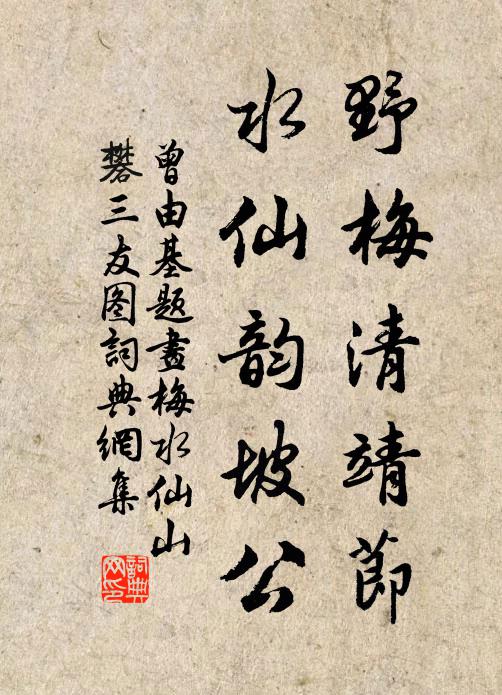 野梅清靖節
水仙韵坡公
曾由基題畫梅水仙山
礬三友图詞典網集
詞典网印